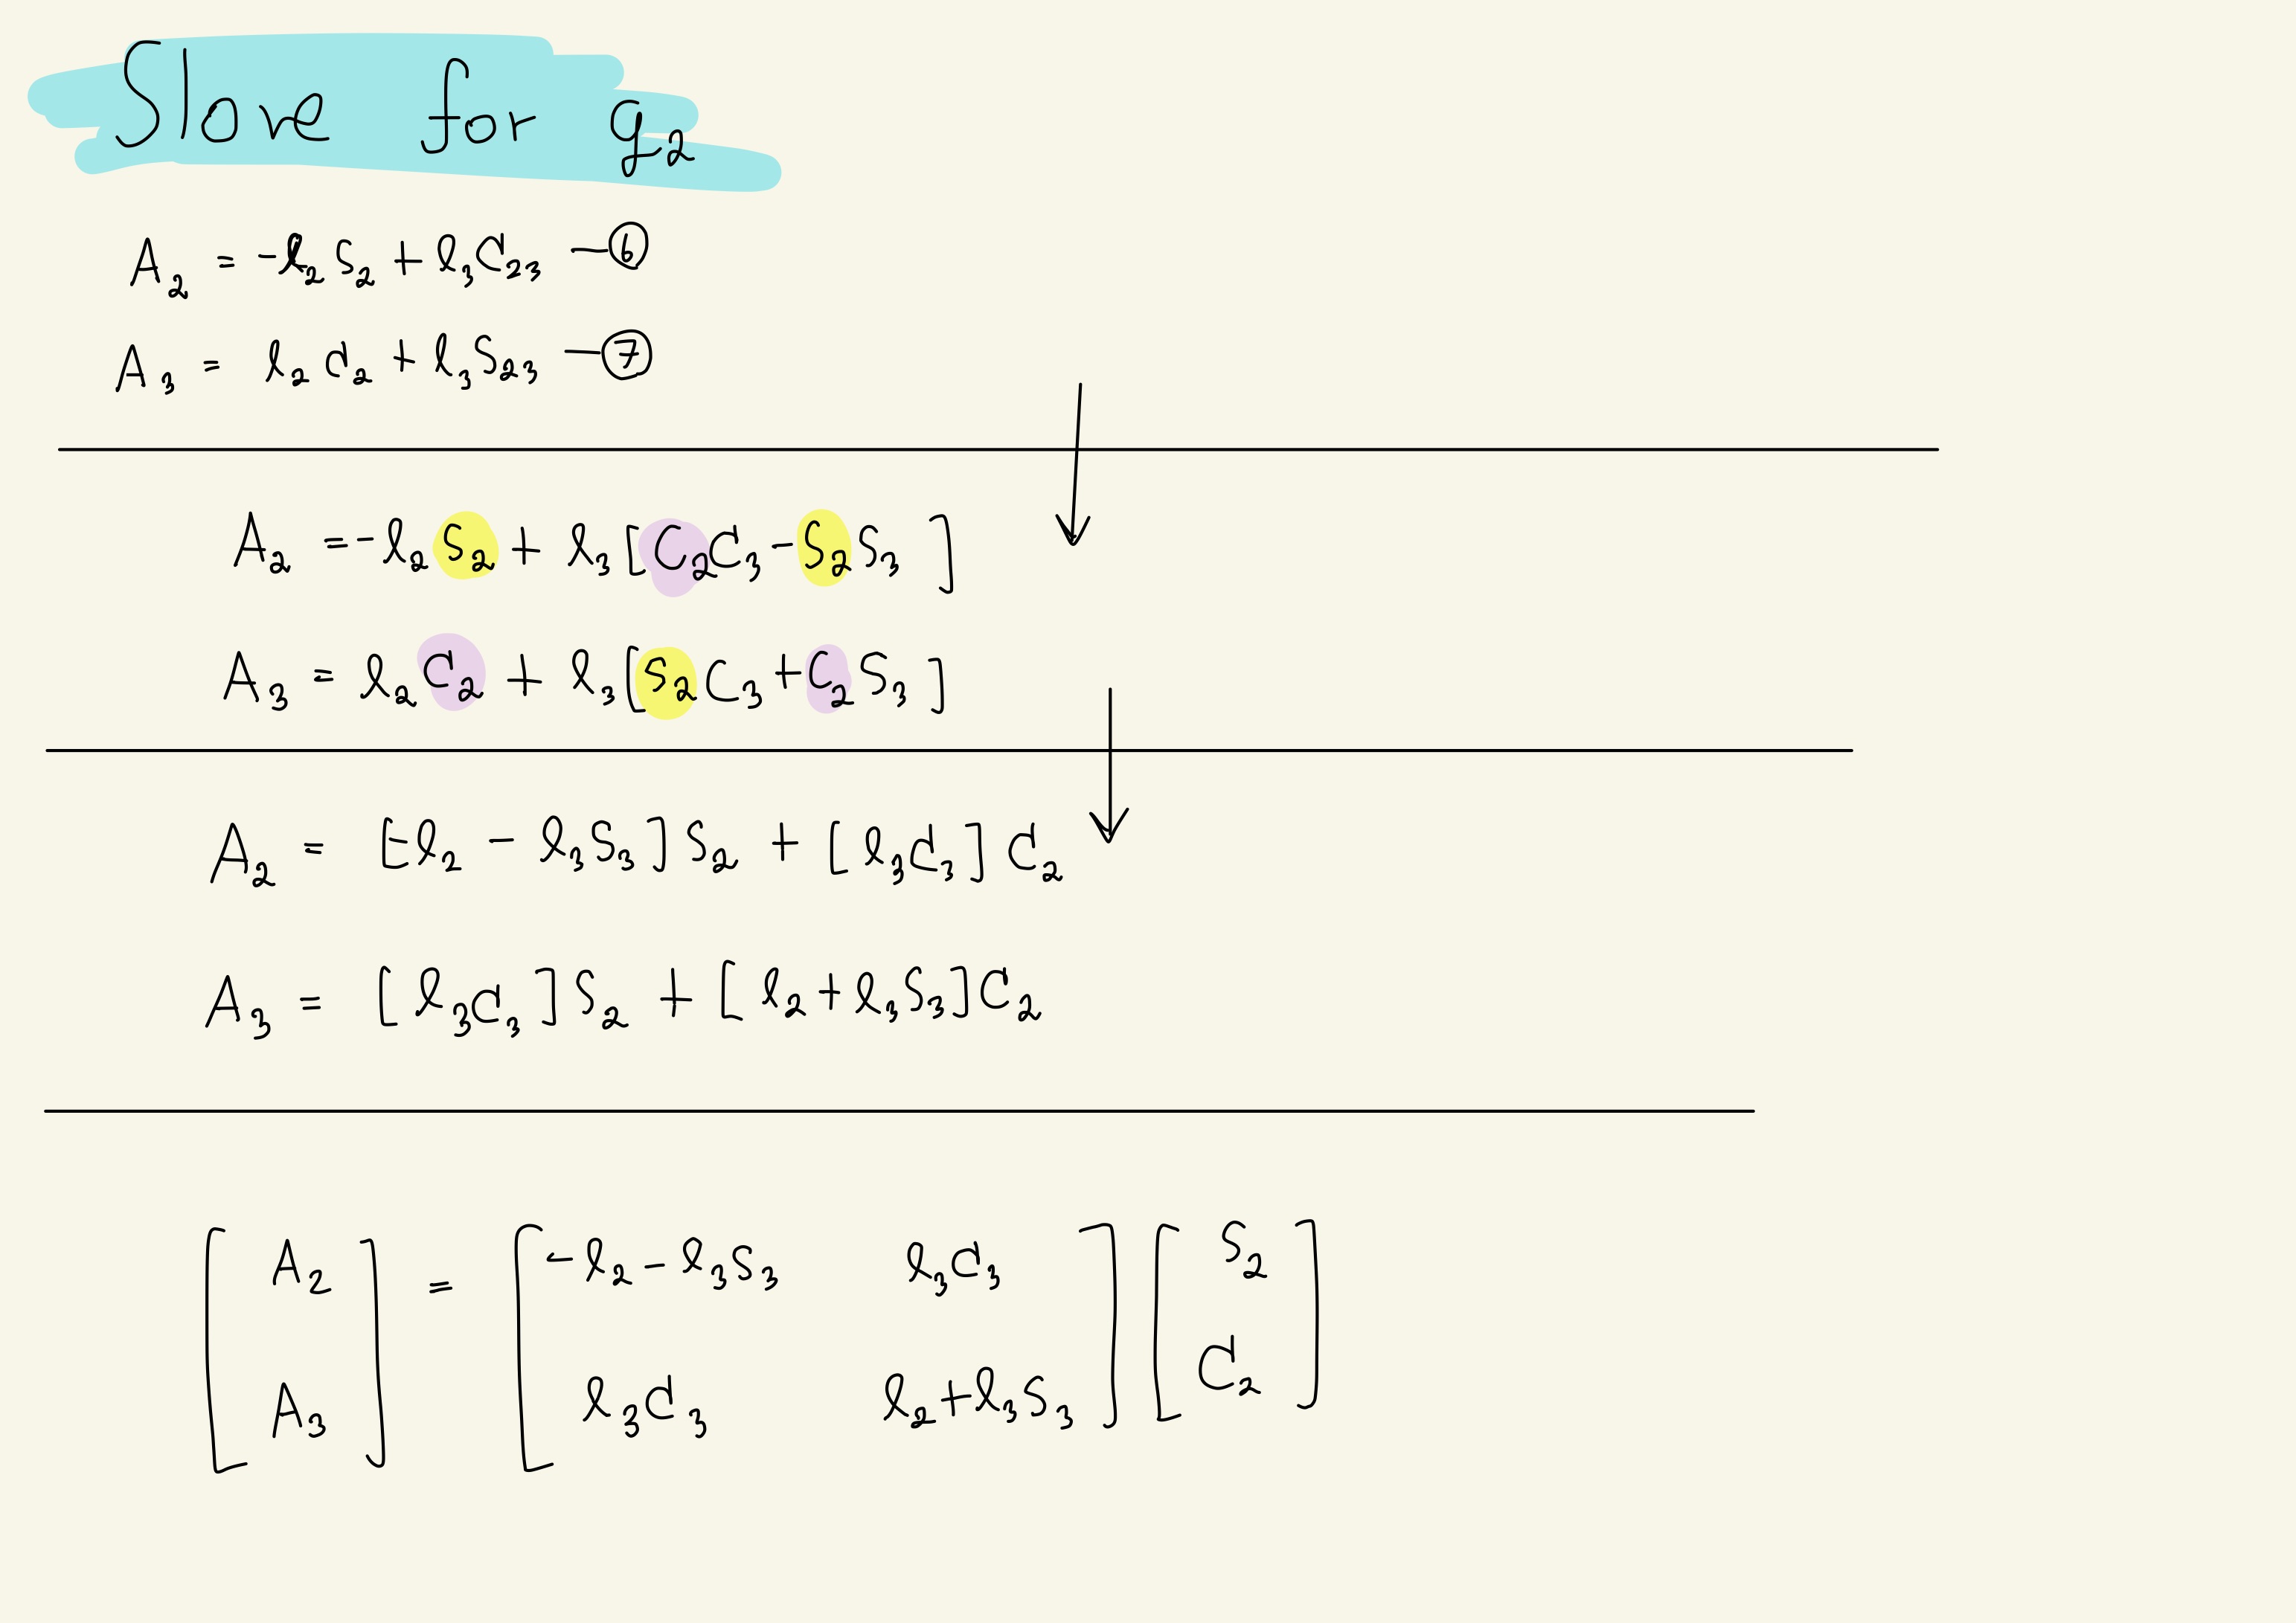 Slove for q₂
A₂ = -l₂ s₂ + l₃ C₂₃ — ⑥
A₃ = l₂ C₂ + l₃ S₂₃ — ⑦
A₂ = - l₂ S₂ + l₃ [ C₂ C₃ - S₂ S₃ ]
A₃ = l₂ C₂ + l₃ [ S₂ C₃ + C₂ S₃ ]
A₂ = [ -l₂ - l₃ S₃ ] S₂ + [ l₃ C₃ ] C₂
A₃ = [ l₃ C₃ ] S₂ + [ l₂ + l₃ S₃ ] C₂
[ A₂ ] = [ -l₂ - l₃ S₃ l₃ C₃ ] [ S₂ ]
[ A₃ ] [ l₃ C₃ l₂ + l₃ S₃ ] [ C₂ ]